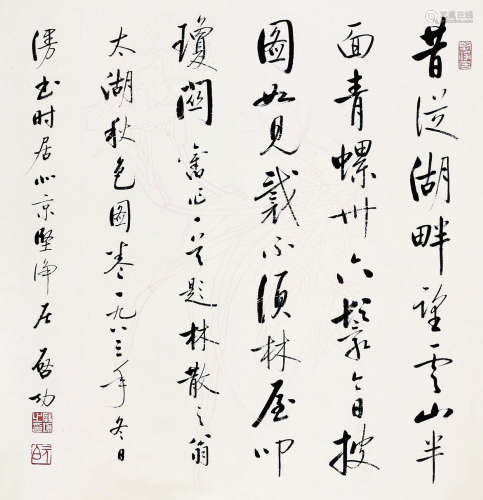 昔從湖畔望雲山半
面青螺卅六鬟今日披
圖如見戴不須林屋叩
瓊關舊作一首題林散之翁
太湖秋色圖卷一九八三年冬日
漫書時居北京堅淨居啓功